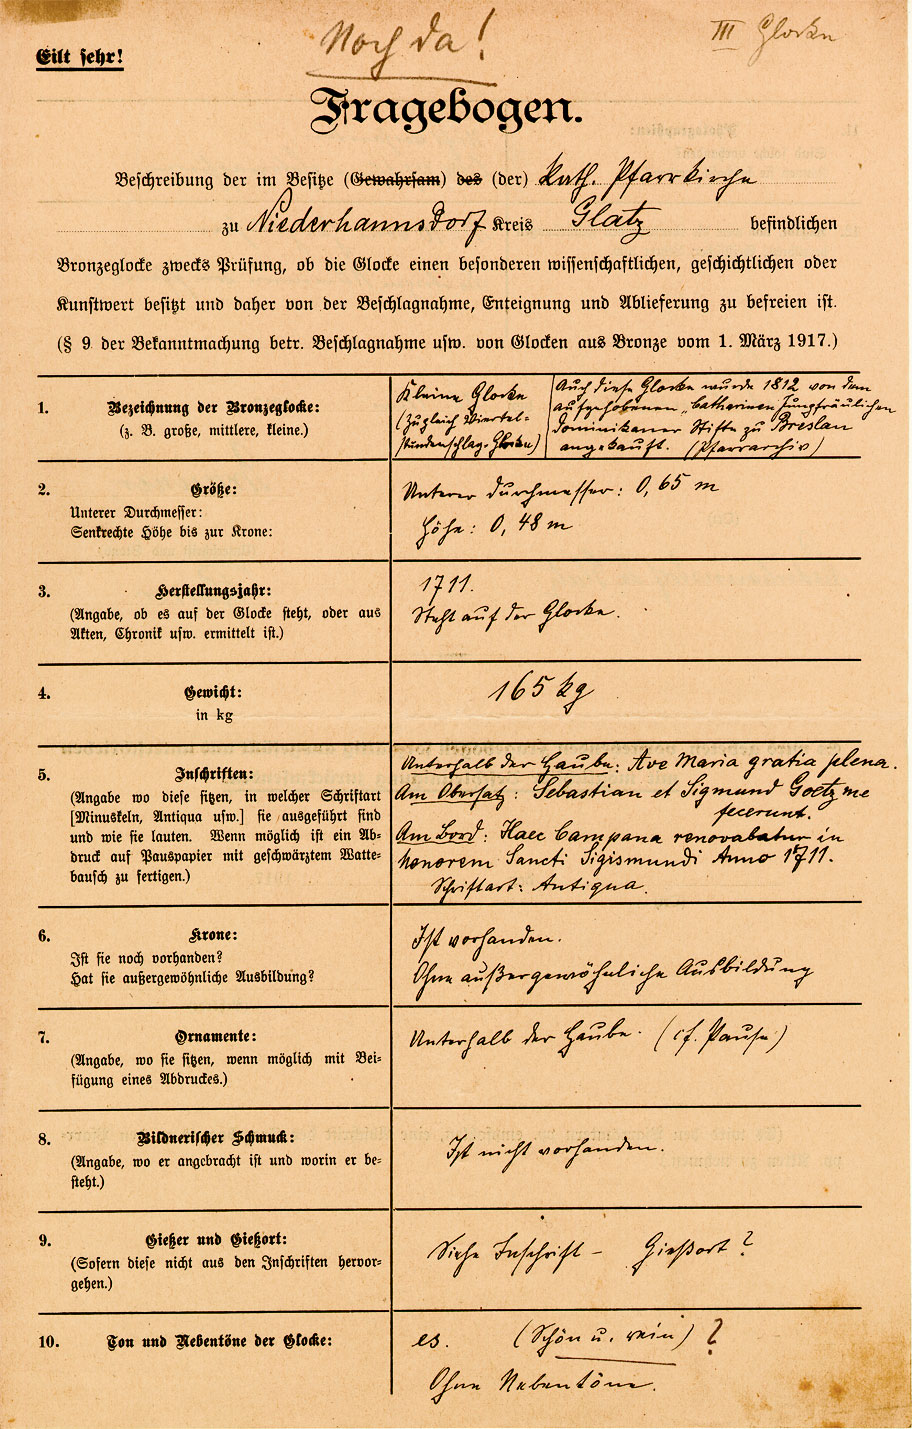 Noch da!
III Glocke
Eilt sehr!
Fragebogen.
Beschreibung der im Besitze (Gewahrsam) des (der) Kath. Pfarrkirche
zu Niederhannsdorf Kreis Glatz befindlichen
Bronzeglocke zwecks Prüfung, ob die Glocke einen besonderen wissenschaftlichen, geschichtlichen oder
Kunstwert besitzt und daher von der Beschlagnahme, Enteignung und Ablieferung zu befreien ist.
(§ 9 der Bekanntmachung betr. Beschlagnahme usw. von Glocken aus Bronze vom 1. März 1917.)
1. Bezeichnung der Bronzeglocke:
(z. B. große, mittlere, kleine.)
Kleine Glocke
(Zugleich Viertel-
stundenschlag-Glocke)
Auch diese Glocke wurde 1812 von dem
aufgehobenen Catharinen Jungfräulichen
Dominikaner Stifte zu Breslau
angekauft. (Pfarrarchiv)
2. Größe:
Unterer Durchmesser:
Senkrechte Höhe bis zur Krone:
Unterer Durchmesser: 0,65 m
Höhe: 0,48 m
3. Herstellungsjahr:
(Angabe, ob es auf der Glocke steht, oder aus
Akten, Chronik usw. ermittelt ist.)
1711.
Steht auf der Glocke.
4. Gewicht:
in kg
165 kg
5. Inschriften:
(Angabe wo diese sitzen, in welcher Schriftart
[Minuskeln, Antiqua usw.] sie ausgeführt sind
und wie sie lauten. Wenn möglich ist ein Ab-
druck auf Pauspapier mit geschwärztem Watte-
bausch zu fertigen.)
Unterhalb der Haube: Ave Maria gratia plena.
Am Obersatz: Sebastian et Sigmund Goetz me
fecerunt.
Am Bord: Haec Campana renovabatur in
honorem Sancti Sigismundi Anno 1711.
Schriftart: Antiqua.
6. Krone:
Ist sie noch vorhanden?
Hat sie außergewöhnliche Ausbildung?
Ist vorhanden.
Ohne außergewöhnliche Ausbildung
7. Ornamente:
(Angabe, wo sie sitzen, wenn möglich mit Bei-
fügung eines Abdruckes.)
Unterhalb der Haube. (cf. Pause)
8. Bildnerischer Schmuck:
(Angabe, wo er angebracht ist und worin er be-
steht.)
Ist nicht vorhanden.
9. Gießer und Gießort:
(Sofern diese nicht aus den Inschriften hervor-
gehen.)
Siehe Inschrift – Gießort?
10. Ton und Nebentöne der Glocke:
es. (Schön u. rein) ?
Ohne Nebentöne.